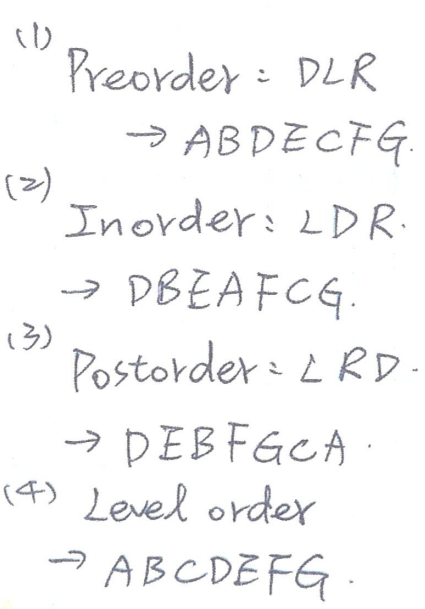 (1)
Preorder: DLR
→ ABDECFG.
(2)
Inorder: LDR.
→ DBEAFCG.
(3)
Postorder: LRD.
→ DEBFGCA.
(4) Level order
→ ABCDEFG.